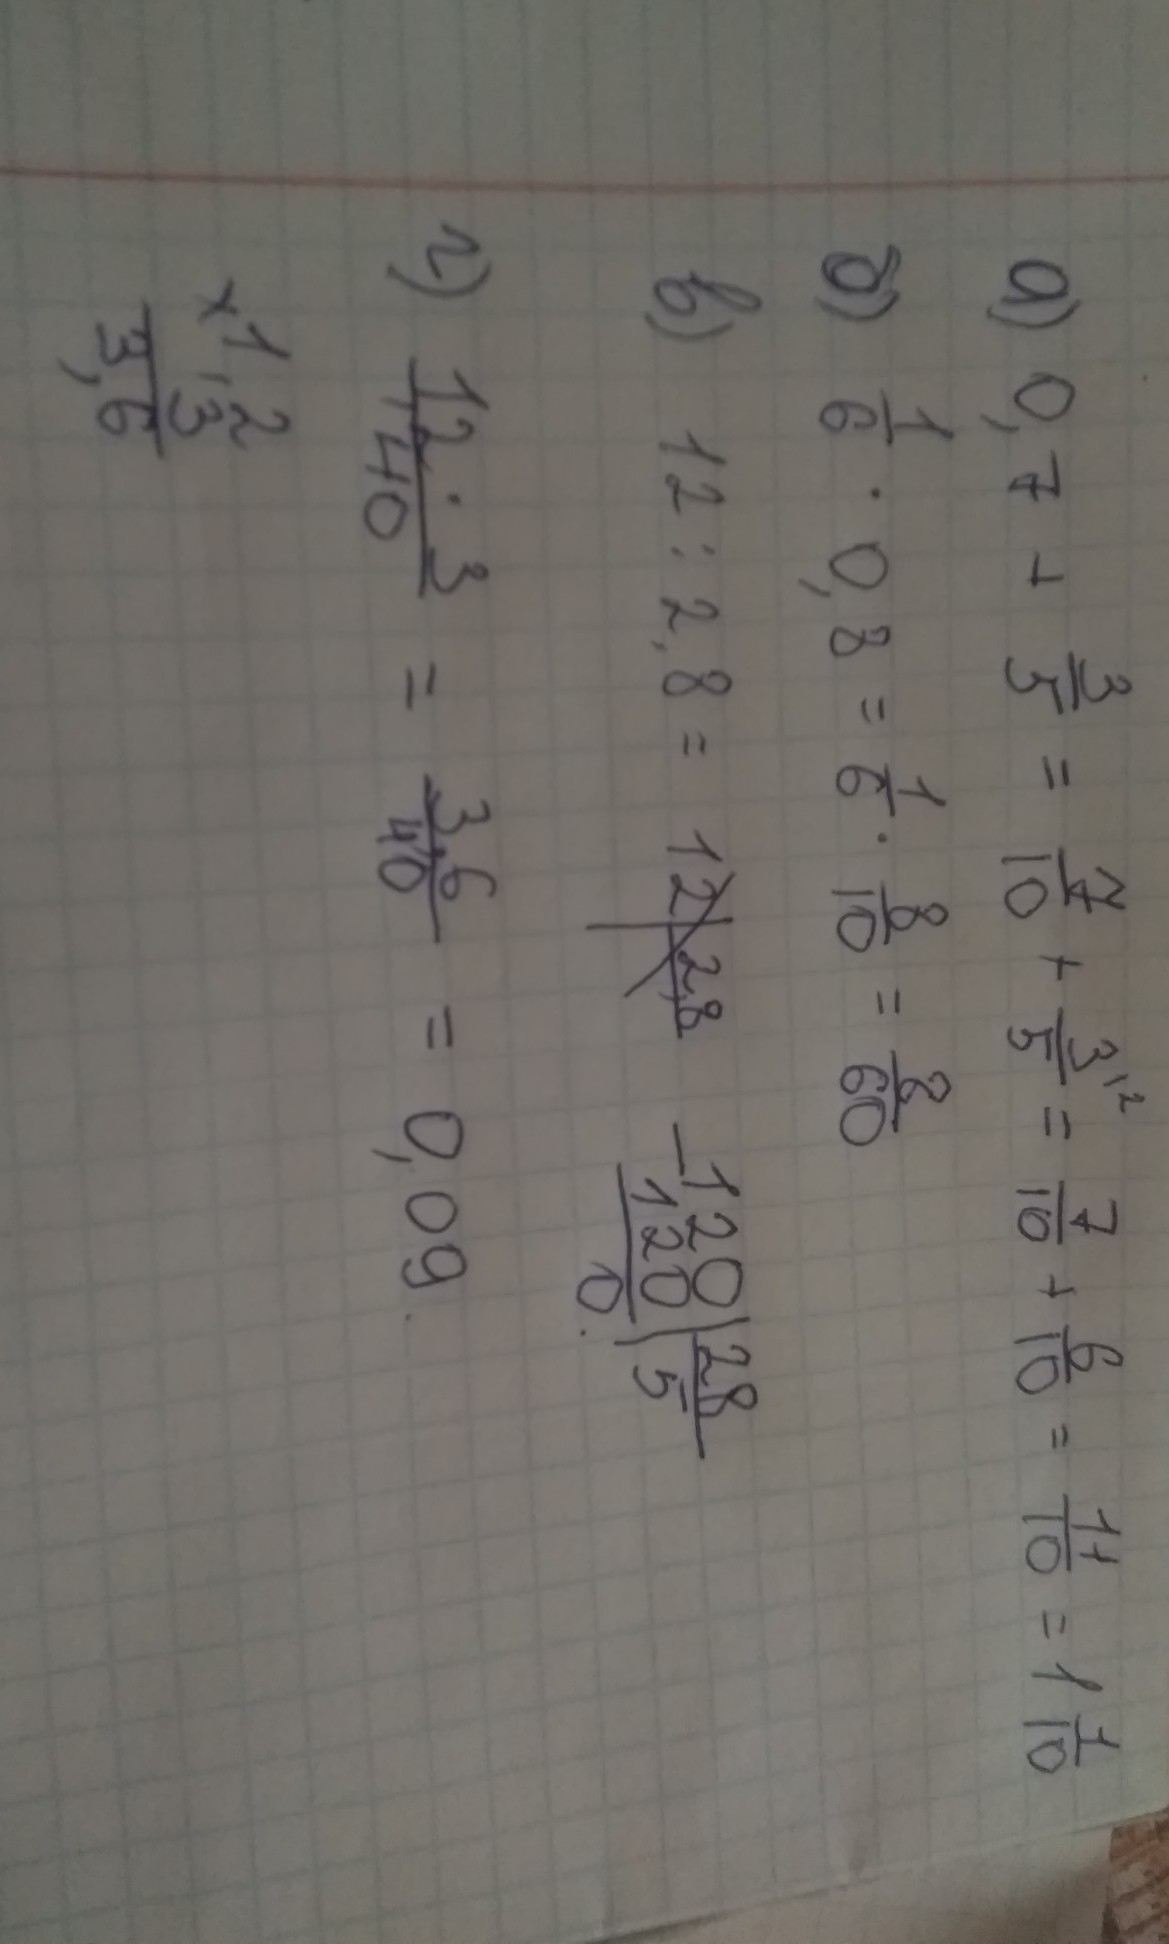 а) 0,7 + 3/5 = 7/10 + 3/5 ¹² = 7/10 + 6/10 = 11/10 = 1 1/10
б) 1/6 · 0,8 = 1/6 · 8/10 = 8/60
в) 12 : 2,8 = 12 | 2,8
− 120 | 28
120 | 5
0
г) 1,2 · 3 / 40 = 3,6 / 40 = 0,09
× 1,2
3
3,6